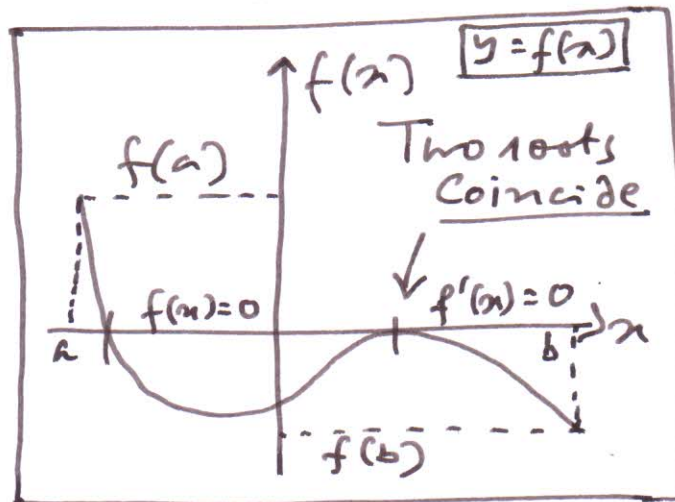 y = f(x)
f(x)
Two roots
Coincide
f(a)
f(x) = 0
f'(x) = 0
a
b
x
f(b)